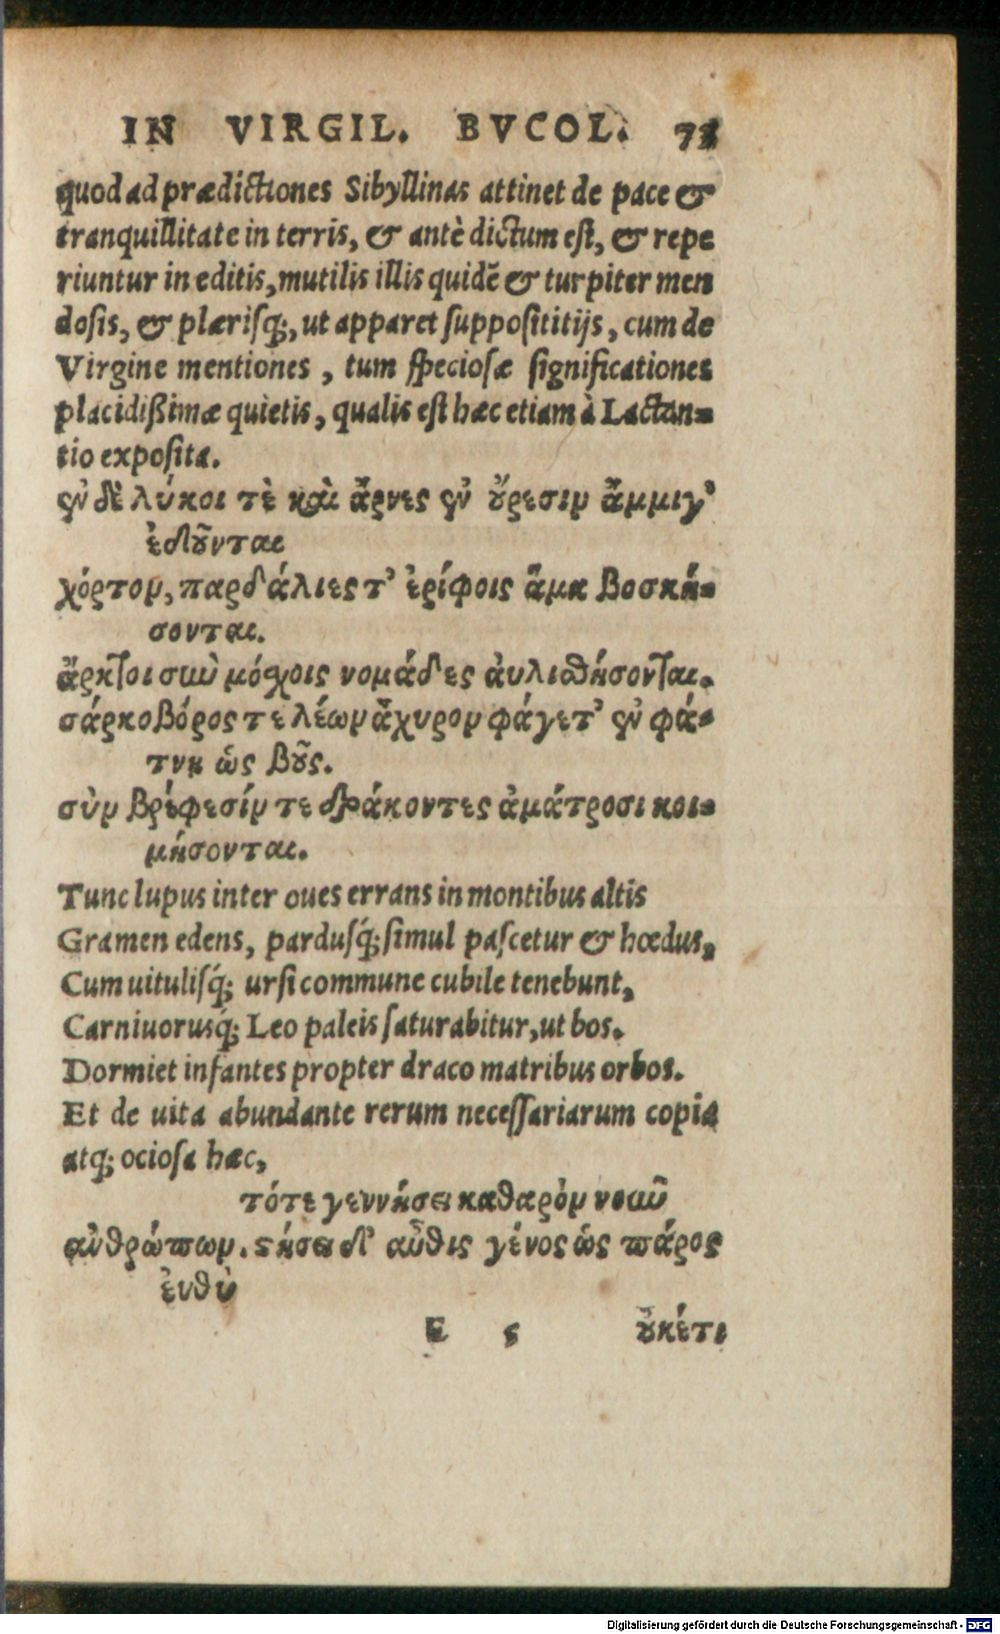 IN VIRGIL. BVCOL. 73
quod ad prædictiones Sibyllinas attinet de pace &
tranquillitate in terris, & antè dictum est, & repe
riuntur in editis, mutilis illis quidẽ & turpiter men
dosis, & plærisq;, ut apparet supposititijs, cum de
Virgine mentiones, tum speciosæ significationes
placidißimæ quietis, qualis est hæc etiam à Lactan=
tio exposita.
ἐν δὲ λύκοι τὲ καὶ ἄρνες ἐν ὄυρεσιν ἄμμιγ’
ἐδοῦνται
χόρτον, παρδάλιες τ’ ἐρίφοις ἅμα βοσκή=
σονται.
ἄρκτοι σὺν μόσχοις νομάδες ἀυλισθήσονται.
σάρκοβόρος τε λέων ἄχυρον φάγετ’ ἐν φά=
τνη ὡς βοῦς.
σὺν βρέφεσίν τε δράκοντες ἀμάτροσι κοι=
μήσονται.
Tunc lupus inter oues errans in montibus altis
Gramen edens, pardusq́; simul pascetur & hœdus,
Cum uitulisq́; ursi commune cubile tenebunt,
Carniuorusq́; Leo paleis saturabitur, ut bos.
Dormiet infantes propter draco matribus orbos.
Et de uita abundante rerum necessariarum copia
atq; ociosa hæc,
τότε γεννήσει καθαρὸν νοῦν
ἀνθρώπων. στήσει δ’ αὖθις γένος ὡς πάρος
ἐυθὺ
E 5 οὐκέτι
Digitalisierung gefördert durch die Deutsche Forschungsgemeinschaft - DFG